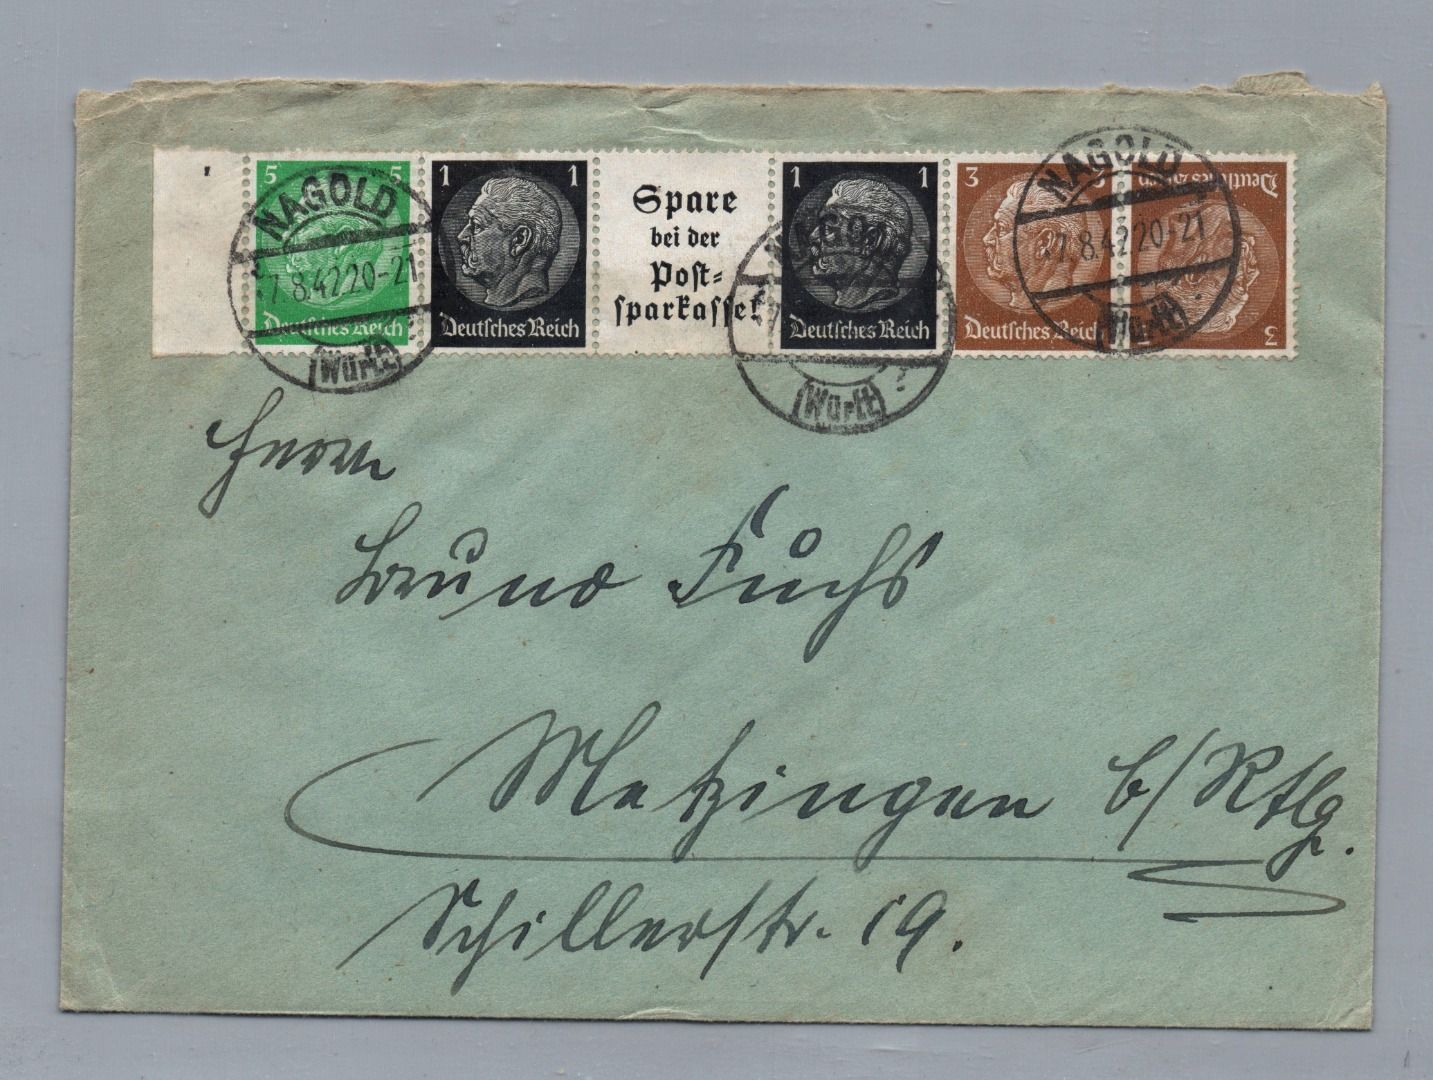 5 5
Deutsches Reich
1 1
Deutsches Reich
Spare
bei der
Post=
sparkasse!
1 1
Deutsches Reich
3 3
Deutsches Reich
3
Deutsches Reich
NAGOLD
7.8.42 20-21
(Württ)
NAGOLD
(Württ)
NAGOLD
7.8.42 20-21
(Württ)
Herrn
Bruno Fuchs
Metzingen b/Rtlg.
Schillerstr. 19.